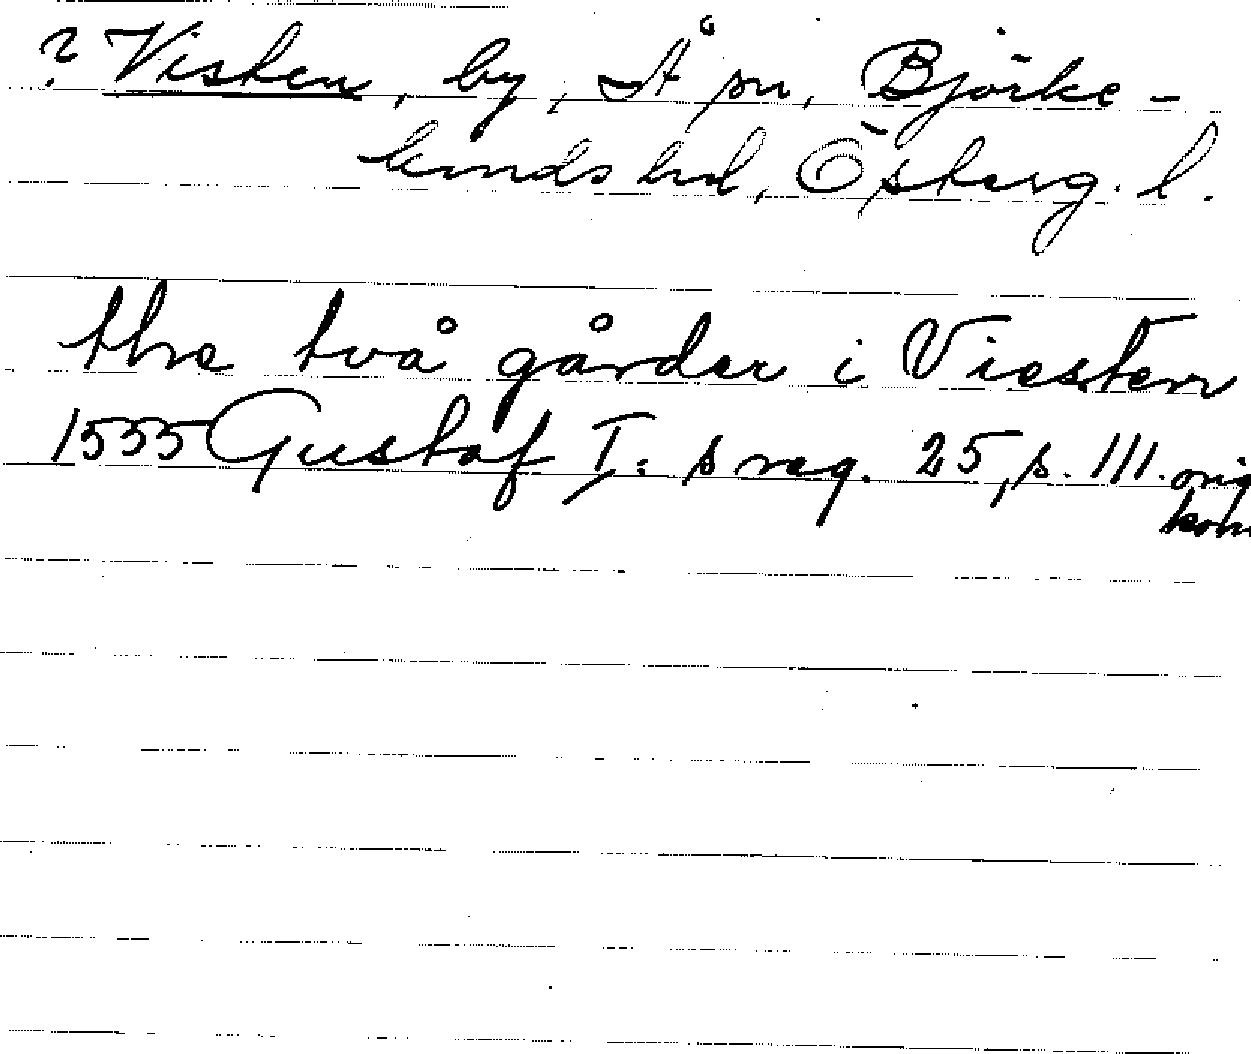 ? Visten, by, Å sn, Björke-
kinds hd, Österg. l.
the två gårder i Viesten
1555 Gustaf I:s reg. 25, s. 111. orig
kom